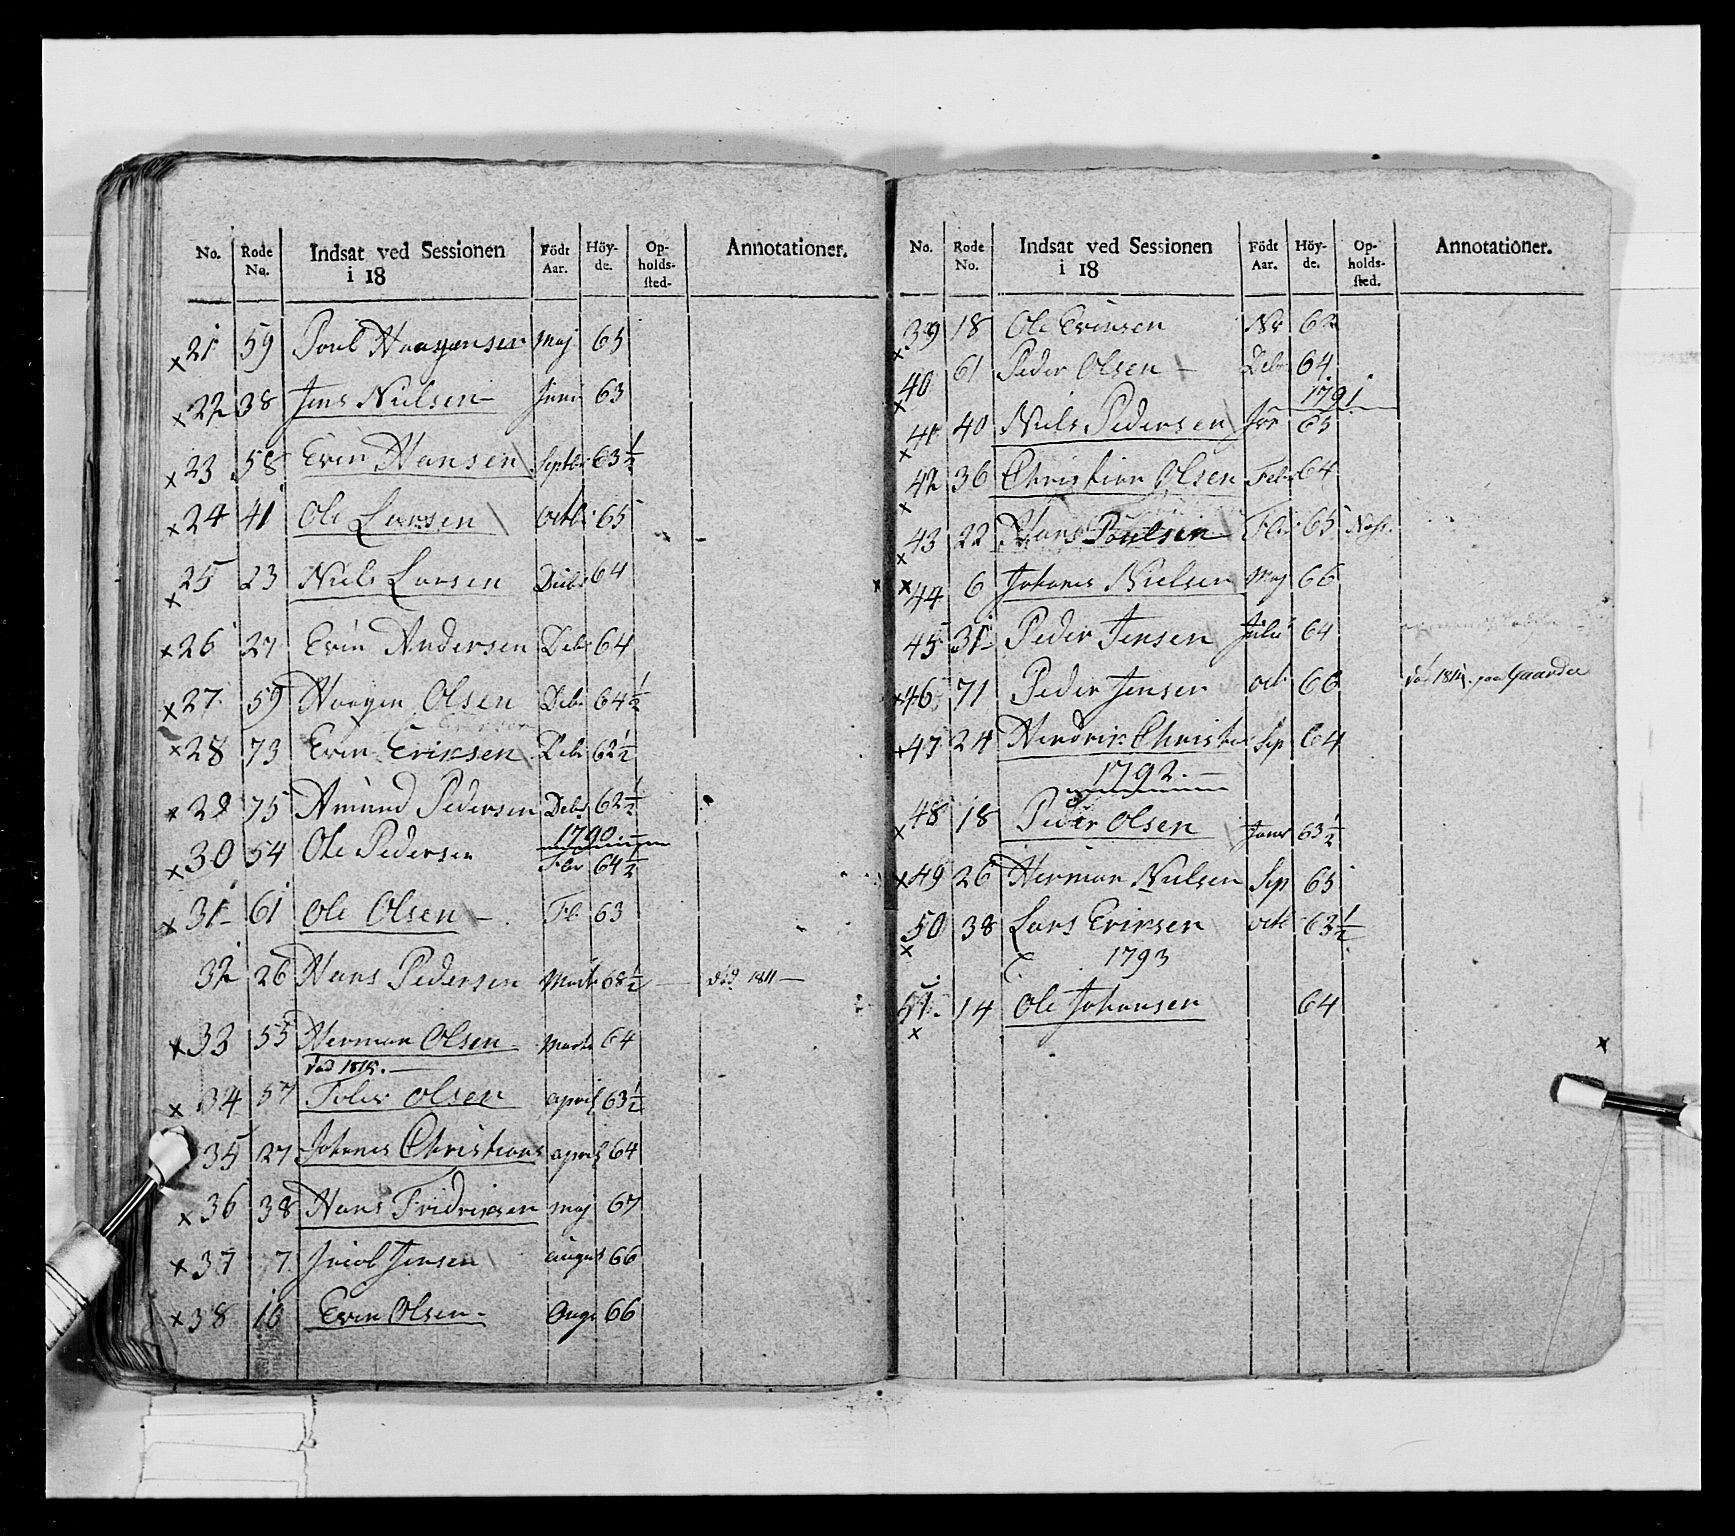 No. Rode No. Indsat ved Sessionen i 18 Födt Aar. Höy-de. Op-holds-sted. Annotationer.
x 21 59 Poul Haagensen Maj 65
x 22 38 Jens Nielsen Juni 63
x 23 58 Erin Hansen Septbr 63½
x 24 41 Ole Larsen octbr 65
x 25 23 Niels Larsen Decbr 64
x 26 27 Erin Andersen Debr 64
x 27 59 Haagen Olsen Debr 64½
x 28 73 Erin Eriksen Debr 62½
x 29 75 Amund Pedersen Debr 62½
1790
x 30 54 Ole Pedersen Fbr 64½
x 31 61 Ole Olsen Fb 63
32 26 Hans Pedersen Marts 68½ död 1811
x 33 55 Herman Olsen Marts 64
död 1815.
x 34 57 Peder Olsen april 63½
35 27 Johanes Christians april 64
x 36 38 Hans Fridriksen Maj 67
x 37 7 Jacob Jensen august 66
x 38 10 Erin Olsen Augs 66
No. Rode No. Indsat ved Sessionen i 18 Födt Aar. Höy-de. Op-holds-sted. Annotationer.
x 39 18 Ole Erinsen Nr 62
x 40 61 Peder Olsen Debr 64
1791
x 41 40 Niels Pedersen Jar 65
x 42 36 Christian Olsen Feb 64
x 43 22 Hans Poulsen Fbr 65
x 44 6 Johanes Nielsen Maj 66
45 31 Peder Jensen Julii 64
x 46 71 Peder Jensen oct 66 död 1814 paa Gaarder
x 47 24 Hendrik Christe Sep 64
1792
x 48 18 Peder Olsen Janr 63½
x 49 26 Herman Nielsen Sep 65
50 38 Lars Eriksen oct 63½
x 1793
51 14 Ole Johansen 64
x